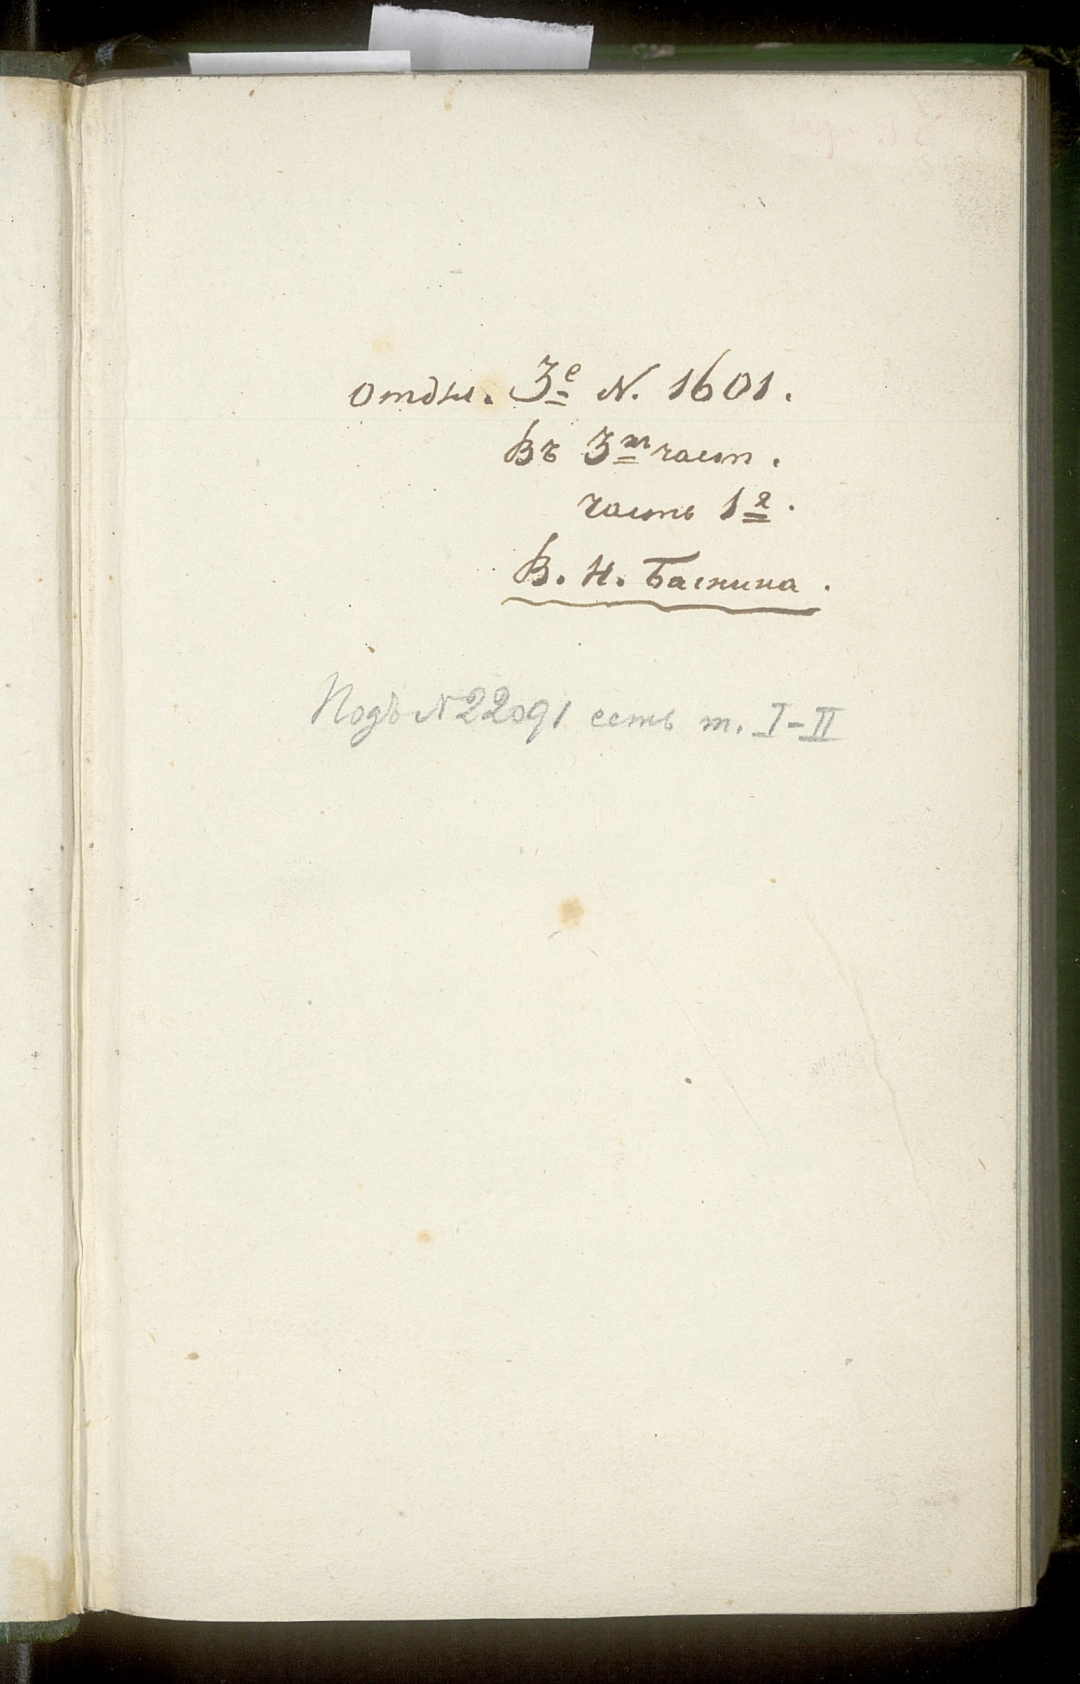 Отдѣл. 3е N. 1601.
Въ 3хъ част.
часть 1я.
В. Н. Баснина.
Подъ № 22091 есть т. I-II